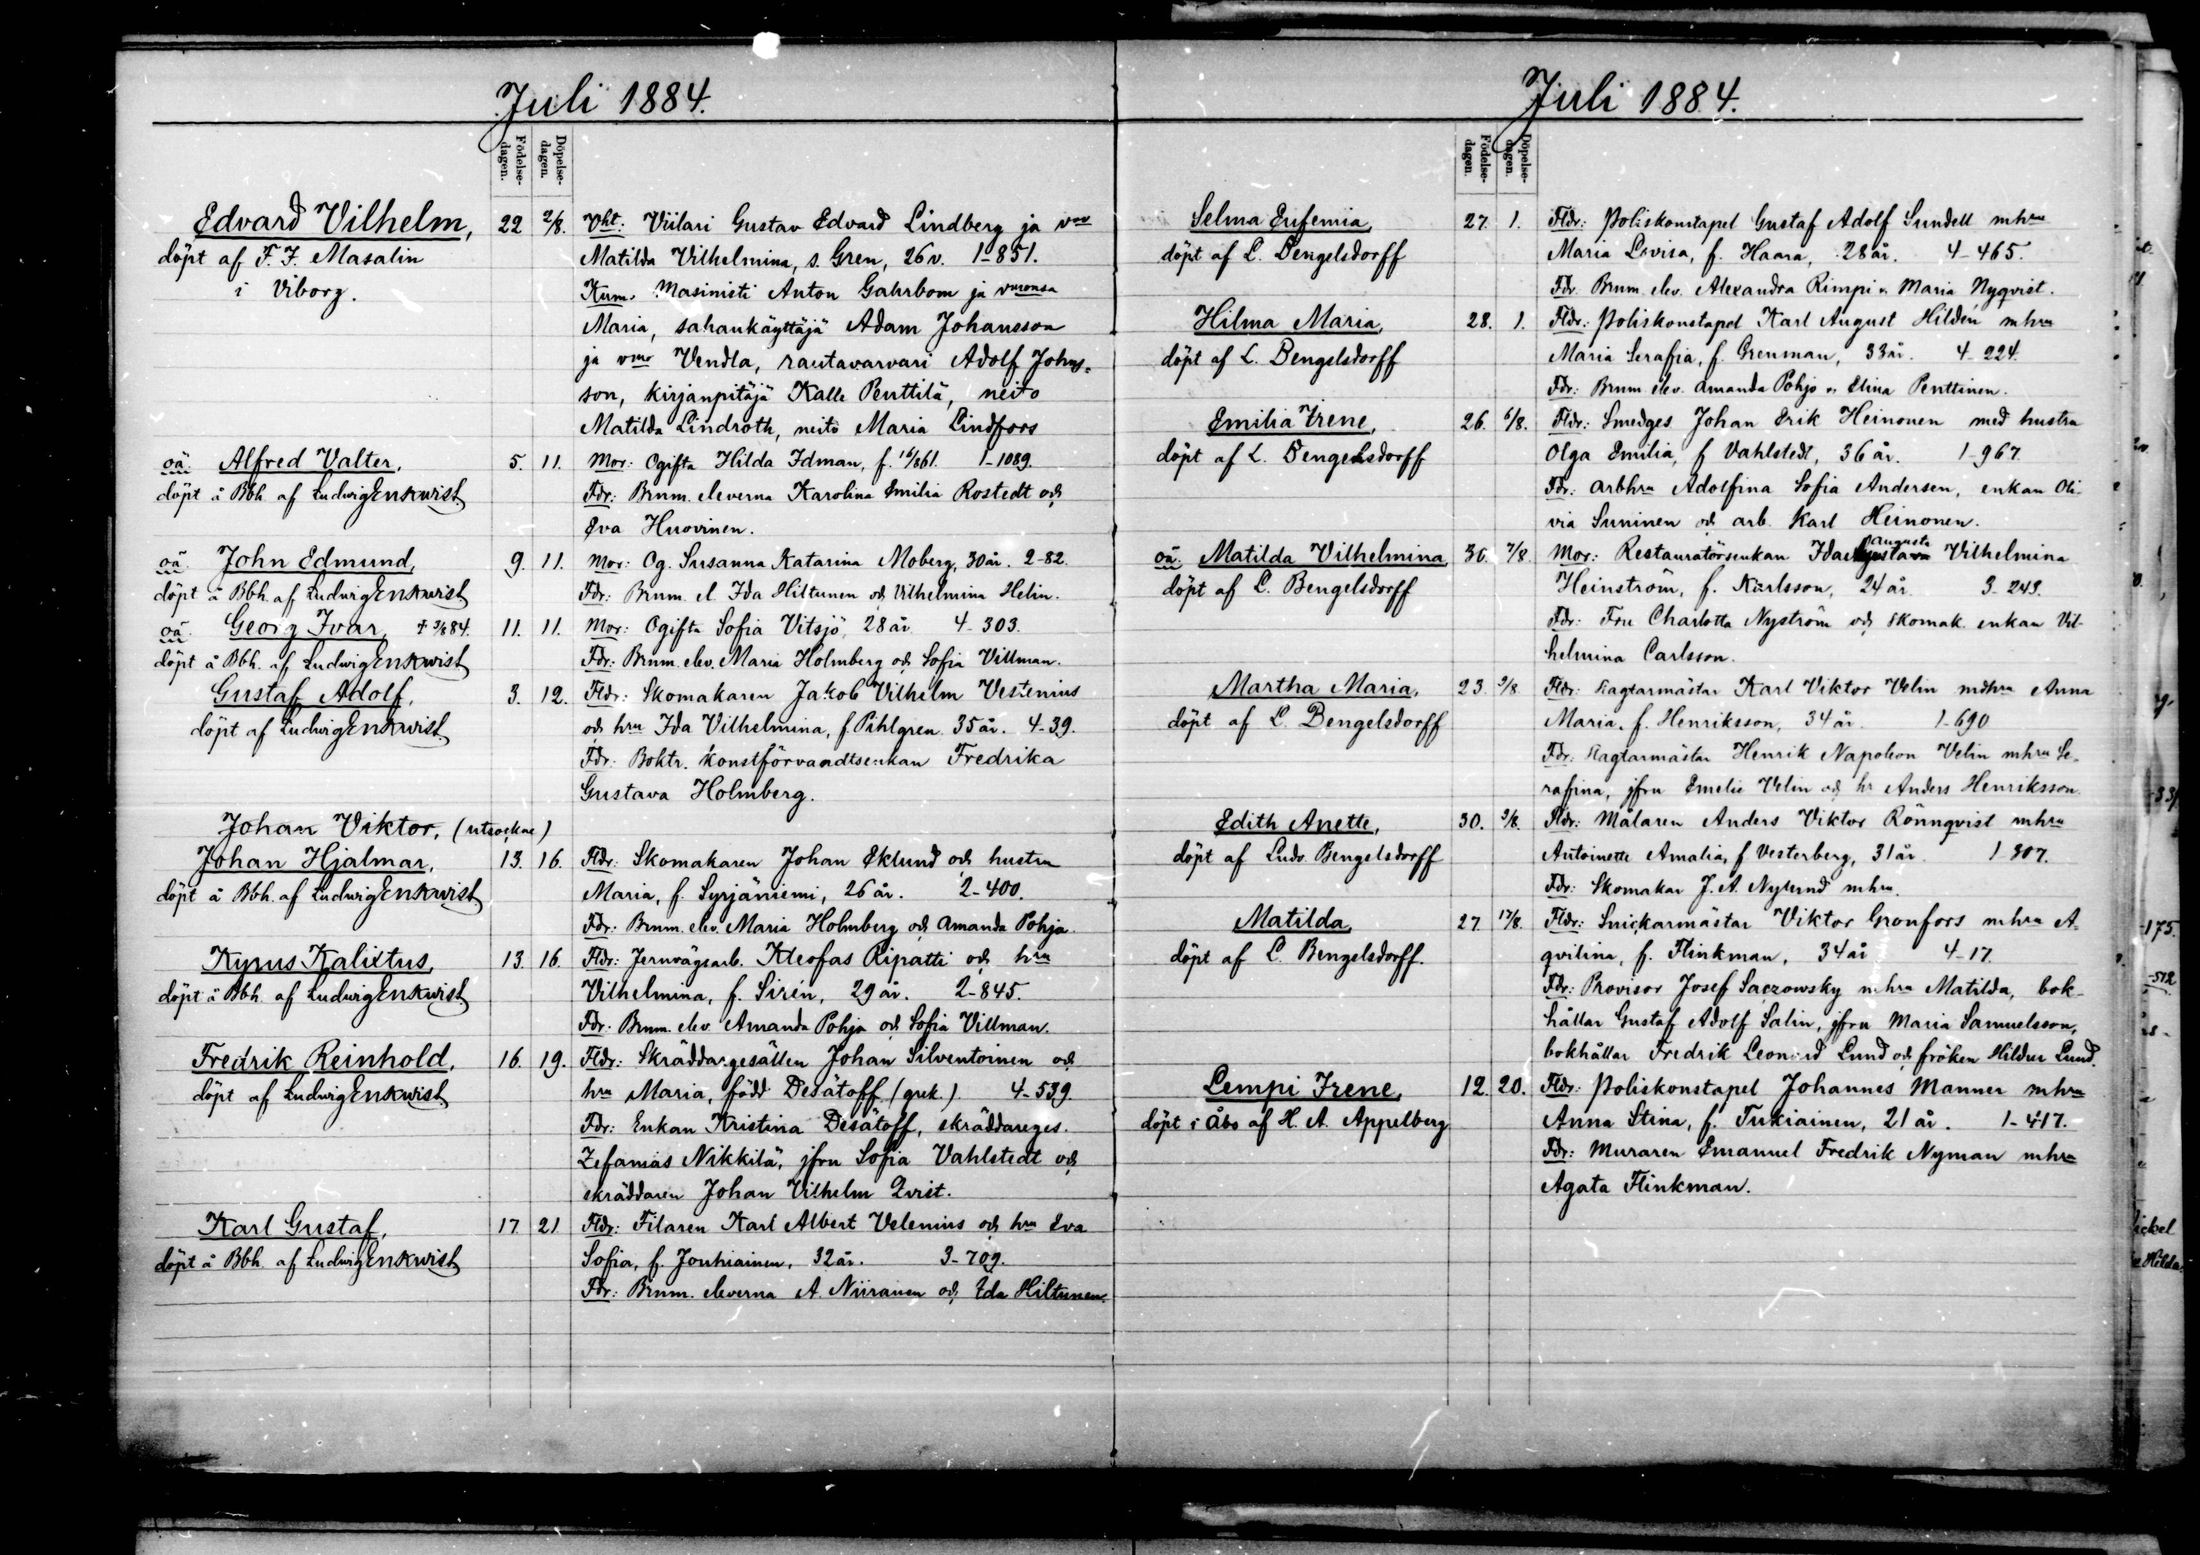 Juli 1884.
Födelse-
dagen.
Döpelse-
dagen.
Edvard Vilhelm, 22 2/8. Vht: Viilari Gustav Edvard Lindberg ja vmo
döpt af F. F. Masalin Matilda Vilhelmina, s. Gren, 26 v. 1-851.
i Viborg. Kum. Masinisti Anton Gahrbom ja vaimonsa
Maria, sahankäyttäjä Adam Johansson
ja vmo Vendla, rautavarvari Adolf Johns-
son, kirjanpitäjä Kalle Penttilä, neito
Matilda Lindroth, neito Maria Lindfors
oä. Alfred Valter, 5. 11. Mor: Ogifta Hilda Idman, f. 16/8 61. 1-1089.
döpt å Bbh. af Ludwig Enkwist Fdr: Brnm. eleverna Karolina Emilia Rostedt och
Eva Huovinen.
oä. John Edmund, 9. 11. Mor: Og. Susanna Katarina Moberg, 30 år. 2-82.
döpt å Bbh. af Ludwig Enkwist Fdr: Brnm. el. Ida Hiltunen och Vilhelmina Helin.
oä. Georg Ivar, † 3/8 84. 11. 11. Mor: Ogifta Sofia Vitsjö, 28 år. 4-303.
döpt å Bbh. af Ludwig Enkwist Fdr: Brnm. elev. Maria Holmberg och Sofia Villman.
Gustaf Adolf, 3. 12. Fldr: Skomakaren Jakob Vilhelm Vestenius
döpt af Ludwig Enkwist och hru Ida Vilhelmina, f. Pihlgren 35 år. 4-39.
Fdr: Boktr. konstförvandtsenkan Fredrika
Gustava Holmberg.
Johan Viktor, (utsockne)
Johan Hjalmar, 13. 16. Fldr: Skomakaren Johan Eklund och hustru
döpt å Bbh. af Ludwig Enkwist Maria, f. Syrjäniemi, 26 år. 2-400.
Fdr: Brnm. elev. Maria Holmberg och Amanda Pohja.
Kyrus Kalixtus, 13. 16. Fldr: Jernvägsarb. Kleofas Ripatti och hru
döpt å Bbh. af Ludwig Enkwist Vilhelmina, f. Sirén, 29 år. 2-845.
Fdr: Brnm. elev. Amanda Pohja och Sofia Villman.
Fredrik Reinhold, 16. 19. Fldr: Skräddargesällen Johan Silventoinen och
döpt af Ludwig Enkwist hru Maria, född Desätoff (grek.) 4-539.
Fdr: Enkan Kristina Desätoff, skräddareges.
Zefanias Nikkilä, jfru Sofia Vahlstedt och
skräddaren Johan Vilhelm Qvist.
Karl Gustaf, 17 21 Fldr: Filaren Karl Albert Velenius och hru Eva
döpt å Bbh. af Ludwig Enkwist Sofia, f. Jouhiainen, 32 år. 3-709.
Fdr: Brnm. eleverna A. Niiranen och Ida Hiltunen.
Juli 1884.
Födelse-
dagen.
Döpelse-
dagen.
Selma Eufemia, 27. 1. Fldr: Poliskonstapel Gustaf Adolf Sundell mhru
döpt af L. Bengelsdorff Maria Lovisa, f. Haara, 28 år. 4-465.
Fdr. Brnm. elev. Alexandra Rimpi o. Maria Nyqvist.
Hilma Maria, 28. 1. Fldr: Poliskonstapel Karl August Hildén mhru
döpt af L. Bengelsdorff Maria Serafia, f. Grenman, 33 år. 4-224.
Fdr: Brnm. elev. Amanda Pohjo o. Elina Penttinen.
Emilia Irene, 26. 6/8. Fldr: Smedges Johan Erik Heinonen med hustru
döpt af L. Bengelsdorff Olga Emilia, f. Vahlstedt, 36 år. 1-967.
Fdr: Arbhru Adolfina Sofia Andersen, enkan Oli-
via Suninen och arb. Karl Heinonen.
oä. Matilda Vilhelmina, 30. 7/8. Mor: Restauratörsenkan Ida Augusta Vilhelmina
döpt af L. Bengelsdorff Heinström, f. Karlsson, 24 år. 3-243.
Fdr: Fru Charlotta Nyström och skomak. enkan Vil-
helmina Carlsson.
Martha Maria, 23. 9/8. Fldr: Flagtarmästar Karl Viktor Velin mdhru Anna
döpt af L. Bengelsdorff Maria, f. Henriksson, 34 år. 1-690
Fdr: Flagtarmästar Henrik Napoleon Velin mhru Se-
rafina, jfru Emelie Velin och hr Anders Henriksson.
Edith Anette, 30. 9/8. Fldr: Målaren Anders Viktor Rönnqvist mhru
döpt af Ludv. Bengelsdorff Antoinette Amalia, f. Vesterberg, 31 år. 1 307.
Fdr: Skomakar J. A. Nylund mhru.
Matilda, 27. 17/8. Fldr: Snickarmästar Viktor Gronfors mhru A-
döpt af L. Bengelsdorff. qvilina, f. Flinkman, 34 år 4-17.
Fdr: Provisor Josef Saczowsky mhru Matilda, bok-
hållar Gustaf Adolf Salin, jfru Maria Samuelsson,
bokhållar Fredrik Leonard Lund och fröken Hildur Lund.
Lempi Irene, 12. 20. Fldr: Poliskonstapel Johannes Manner mhru
döpt i Åbo af H. A. Appelberg Anna Stina, f. Tukiainen, 21 år. 1-417.
Fdr: Muraren Emanuel Fredrik Nyman mhru
Agata Flinkman.
175.
572
ickel
Hilda